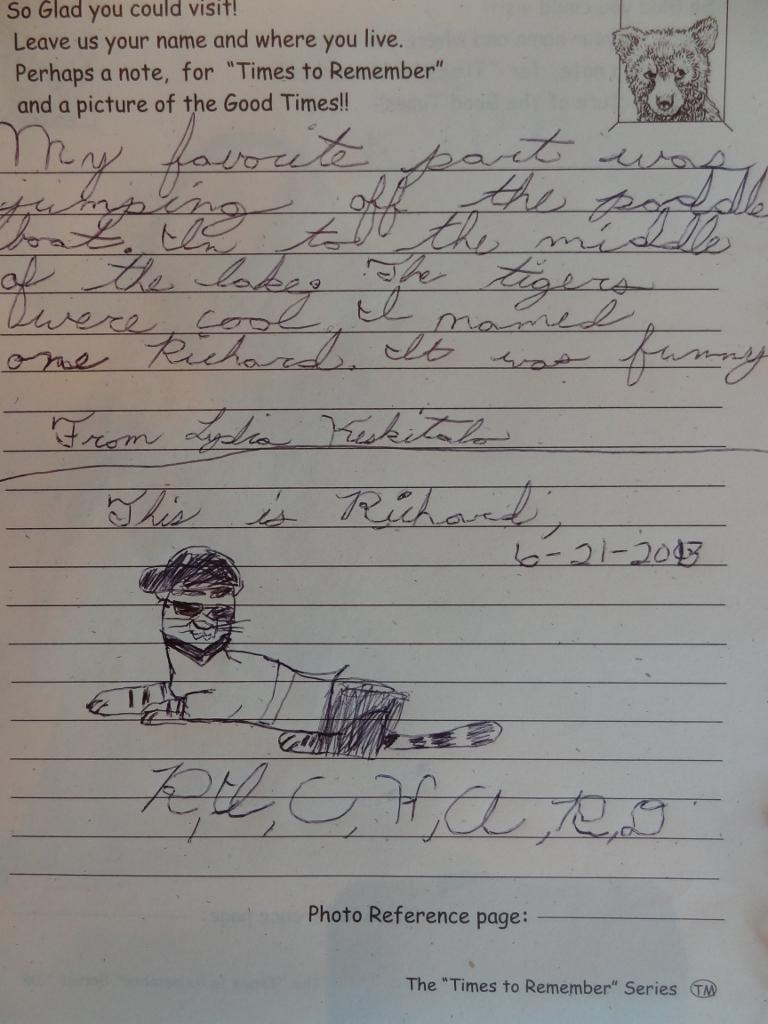 So Glad you could visit!
Leave us your name and where you live.
Perhaps a note, for "Times to Remember"
and a picture of the Good Times!!
My favorite part was
jumping off the paddle
boat. In to the middle
of the lake. The tigers
were cool, I named
one Richard. It was funny
From Lydia Keskitalo
This is Richard,
6-21-2013
R, I, C, H, A, R, D
Photo Reference page:
The "Times to Remember" Series TM